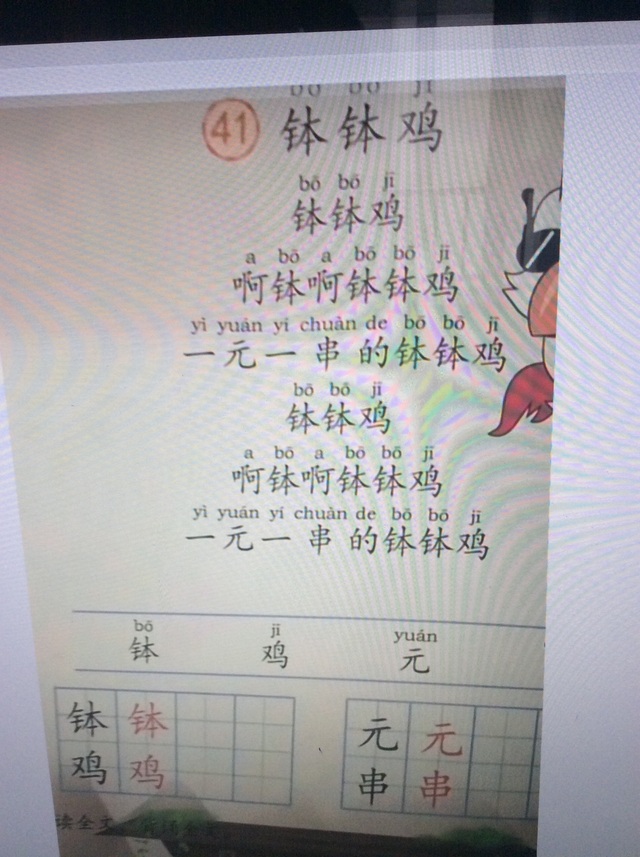 bō bō jī
41 钵钵鸡
bō bō jī
钵钵鸡
a bō a bō bō jī
啊钵啊钵钵鸡
yì yuán yí chuàn de bō bō jī
一元一串的钵钵鸡
bō bō jī
钵钵鸡
a bō a bō bō jī
啊钵啊钵钵鸡
yì yuán yí chuàn de bō bō jī
一元一串的钵钵鸡
bō jī yuán
钵 鸡 元
钵 钵 元 元
鸡 鸡 串 串
读全文